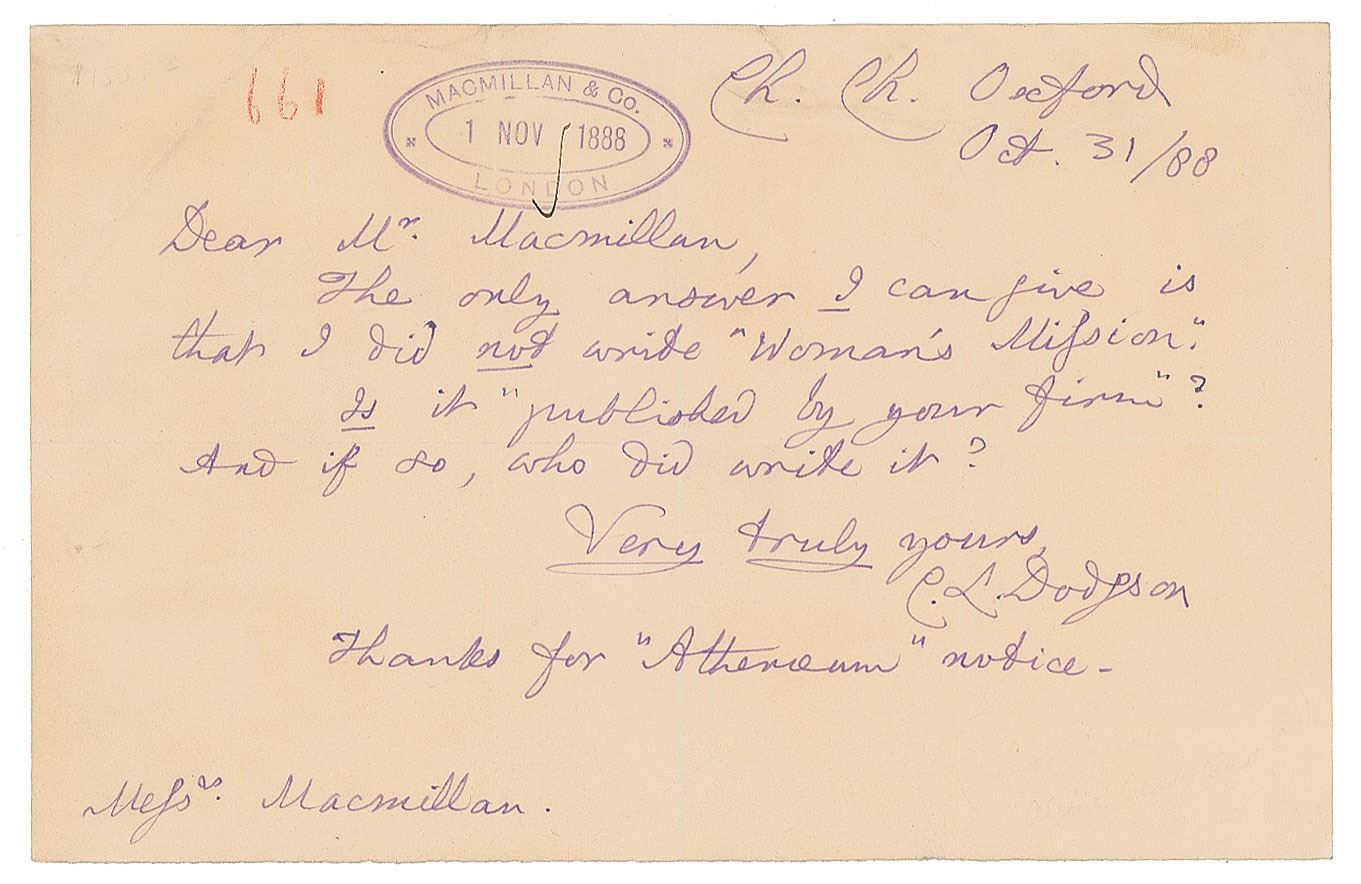 661
MACMILLAN & Co.
1 NOV 1888
LONDON
Ch. Ch. Oxford
Oct. 31/88
Dear Mr. Macmillan,
The only answer I can give is
that I did not write "Woman's Miſsion."
Is it "published by your firm"?
And if so, who did write it?
Very truly yours,
C. L. Dodgson
Thanks for "Athenæum" notice -
Meſsrs. Macmillan.